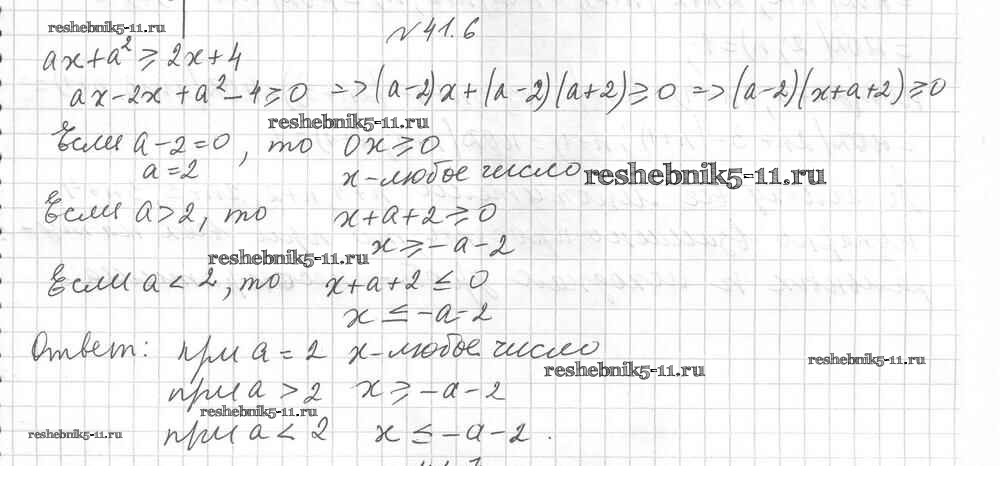 reshebnik5-11.ru
№41.6
ax+a² ≥ 2x+4
ax-2x+a²-4≥0 => (a-2)x+(a-2)(a+2)≥0 => (a-2)(x+a+2)≥0
reshebnik5-11.ru
Если a-2=0, то 0x≥0
a=2 x-любое число reshebnik5-11.ru
Если a>2, то x+a+2≥0
reshebnik5-11.ru x≥-a-2
Если a<2, то x+a+2≤0
x≤-a-2
Ответ: при a=2 x-любое число
reshebnik5-11.ru reshebnik5-11.ru
при a>2 x≥-a-2
reshebnik5-11.ru
reshebnik5-11.ru при a<2 x≤-a-2.